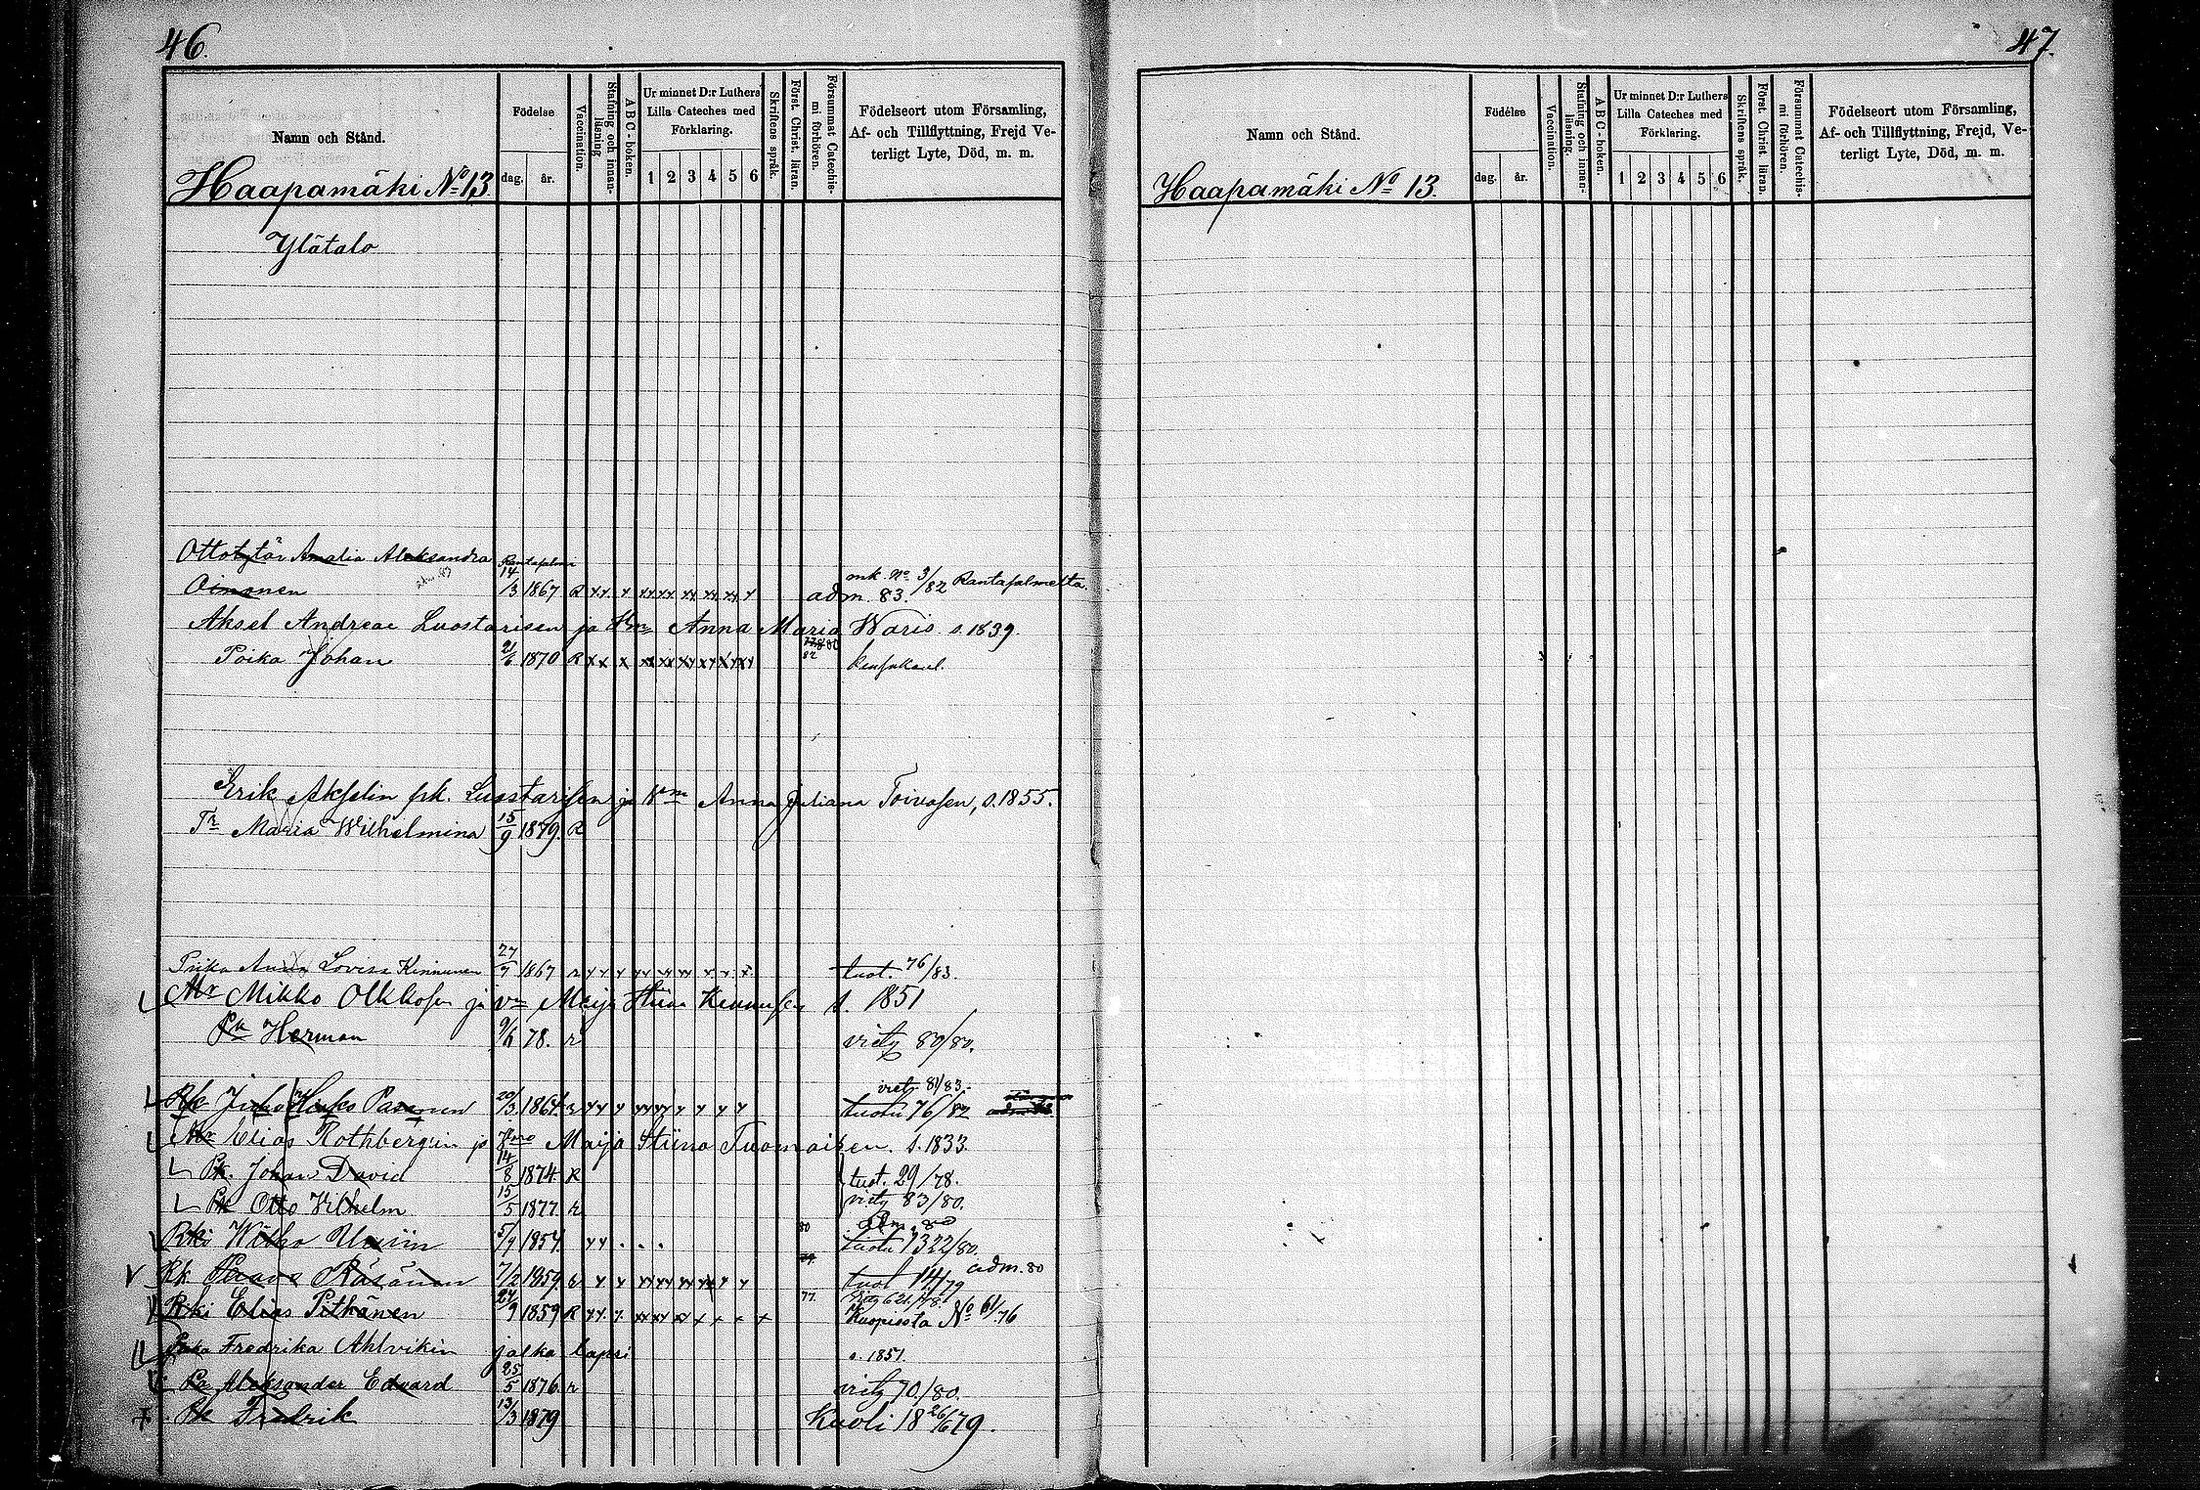 46.
Namn och Stånd.
Födelse
dag.
år.
Vaccination.
Stafning och innan-
läsning
ABC-boken.
Ur minnet D:r Luthers
Lilla Cateches med
Förklaring.
1 2 3 4 5 6
Skriftens språk.
Först. Christ. läran.
Försummat Catechis-
mi förhören.
Födelseort utom Församling,
Af- och Tillflyttning, Frejd Ve-
terligt Lyte, Död, m. m.
Haapamäki No 13.
Ylätalo
Ottotytär Amalia Aleksandra Rantasalmi
Oinonen 14/3 1867 R xx x xx xx xx xx xx x adm. 83. mk. No 3/82 Rantasalmelta
Aksel Andreae Luostarisen ja Anna Maria Waris s. 1839.
Poika Johan 21/6 1870 R xx x 82
Erik Akselin pk. Luostarisen ja Anna Juliana Toivosen, s. 1855.
Tr Maria Wilhelmina 15/9 1879. R
Piika Anna Lovisa Kinnunen 27/7 1867 tuot. 76/83.
Mr Mikko Olkkosen ja vm Maija Stiina s. 1851
Pk Herman 9/6 78. r viety 80/80.
viety 81/83.
Rk Juho Pasanen 20/3 1864 tuotu 76/82
Mr Elias Rothbergin ja Maija Stiina Tuomaisen. s. 1833.
Pk. Johan David 14/8 1874 R tuot. 29/78.
Pk Otto Vilhelm 15/5 1877 r viety 83/80.
Rki 5/7 1854 80 adm. 80 tuotu 1322/80.
Rk Räsänen 7/2 1859 tuot 14/79 adm. 80
Rki Elias Pitkänen 24/9 1859 R 77. Kuopiosta No 61/76
Fredrika Ahlvikin jalka lapsi s. 1851.
Pa Aleksander Edvard 25/5 1876 r viety 70/80.
Pk Fredrik 13/3 1879 Kuoli 18 26/6 79.
47.
Namn och Stånd.
Födelse
dag.
år.
Vaccination.
Stafning och innan-
läsning.
ABC-boken.
Ur minnet D:r Luthers
Lilla Cateches med
Förklaring.
1 2 3 4 5 6
Skriftens språk.
Först. Christ. läran.
Försummat Catechis-
mi förhören.
Födelseort utom Församling,
Af- och Tillflyttning, Frejd, Ve-
terligt Lyte, Död, m. m.
Haapamäki No 13.